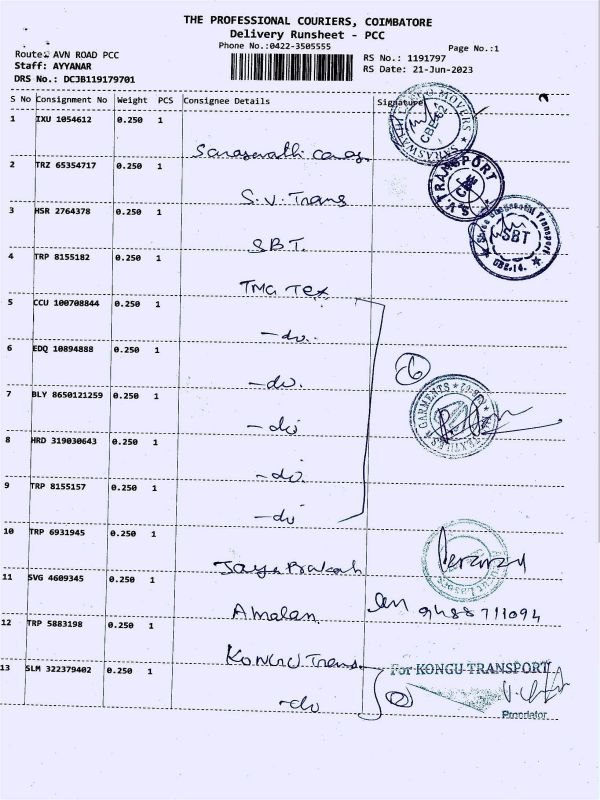 THE PROFESSIONAL COURIERS, COIMBATORE
Delivery Runsheet - PCC
Phone No.:0422-3505555
Page No.:1
Route: AVN ROAD PCC
Staff: AYYANAR
DRS No.: DCJB119179701
RS No.: 1191797
RS Date: 21-Jun-2023
S No Consignment No Weight PCS Consignee Details Signature
1 IXU 1054612 0.250 1
2 TRZ 65354717 0.250 1 S.V. Trans
S.V. TRANSPORT
3 HSR 2764378 0.250 1 SBT.
SBT
CBE.14.
4 TRP 8155182 0.250 1 TMG Tex
5 CCU 100708844 0.250 1 -do.
6 EDQ 10894888 0.250 1 -do.
6
GARMENTS
7 BLY 8650121259 0.250 1 -do
8 HRD 319030643 0.250 1 -do.
9 TRP 8155157 0.250 1 -do
10 TRP 6931945 0.250 1 Jaya Prakash
11 SVG 4609345 1 Amalan 9488711094
12 TRP 5883198 0.250 1 Kongu Trans
For KONGU TRANSPORT
13 SLM 322379402 0.250 1 -do
2
Proprietor